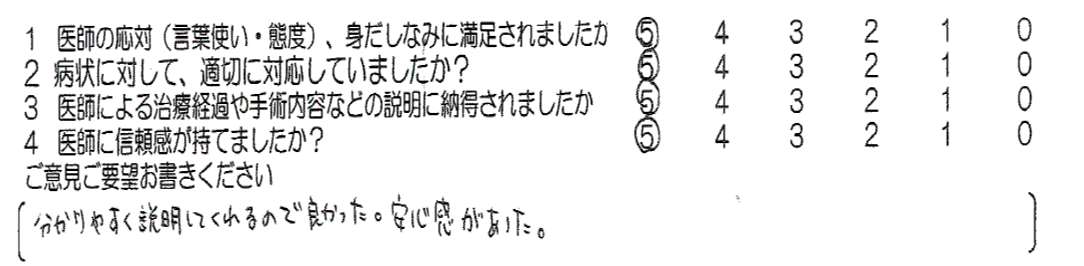 1 医師の応対（言葉使い・態度）、身だしなみに満足されましたか ⑤ 4 3 2 1 0
2 病状に対して、適切に対応していましたか？ ⑤ 4 3 2 1 0
3 医師による治療経過や手術内容などの説明に納得されましたか ⑤ 4 3 2 1 0
4 医師に信頼感が持てましたか？ ⑤ 4 3 2 1 0
ご意見ご要望お書きください
分かりやすく説明してくれるので良かった。安心感があった。